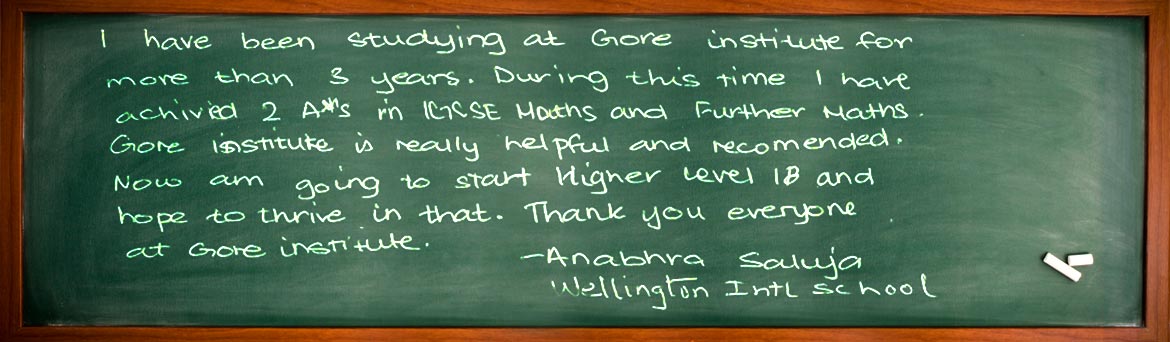 I have been studying at Gore institute for
more than 3 years. During this time I have
achivied 2 A*'s in IGCSE Maths and Further Maths.
Gore institute is really helpful and recomended.
Now am going to start Higher Level IB and
hope to thrive in that. Thank you everyone
at Gore institute.
-Anabhra Saluja
Wellington Intl school